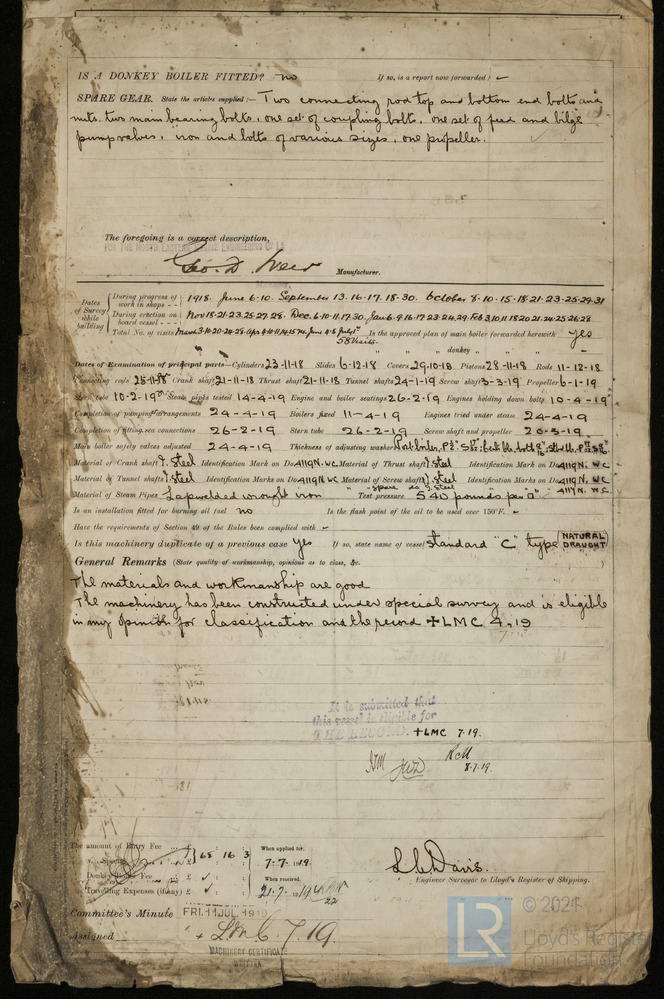 IS A DONKEY BOILER FITTED? no If so, is a report now forwarded? –
SPARE GEAR. State the articles supplied:— Two connecting rod top and bottom end bolts and
nuts, two main bearing bolts, one set of coupling bolts, one set of feed and bilge
pump valves, iron and bolts of various sizes, one propeller.
The foregoing is a correct description,
FOR THE NORTH EASTERN MARINE ENGINEERING Co LD
Geo. D. Weir Manufacturer.
Dates of Survey while building
During progress of work in shops - - 1918. June 6. 10. September 13. 16. 17. 18. 30. October 8. 10. 15. 18. 21. 23. 25. 29. 31
During erection on board vessel - - - Nov 18. 21. 23. 25. 27. 28. Dec. 6. 10. 11. 17. 30. Jan 6. 9. 16. 17. 23. 24. 29. Feb 3. 10. 11. 18. 20. 21. 24. 25. 26. 28
Total No. of visits March 3. 10. 20. 24. 28. 58 visits. Is the approved plan of main boiler forwarded herewith yes
" " donkey " " "
Dates of Examination of principal parts—Cylinders 23-11-18 Slides 6-12-18 Covers 29-10-18 Pistons 28-11-18 Rods 11-12-18
Connecting rods 25-11-18 Crank shaft 21-11-18 Thrust shaft 21-11-18 Tunnel shafts 24-1-19 Screw shaft 3-3-19 Propeller 6-1-19
Stern tube 10-2-19 Steam pipes tested 14-4-19 Engine and boiler seatings 26-2-19 Engines holding down bolts 10-4-19
Completion of pumping arrangements 24-4-19 Boilers fixed 11-4-19 Engines tried under steam 24-4-19
Completion of fitting sea connections 26-2-19 Stern tube 26-2-19 Screw shaft and propeller 20-3-19
Main boiler safety valves adjusted 24-4-19 Thickness of adjusting washers Port boiler,
Material of Crank shaft I. Steel Identification Mark on Do 4119N. WC Material of Thrust shaft I. Steel Identification Mark on Do 4119N. WC
Material of Tunnel shafts I. Steel Identification Marks on Do 4119N. WC Material of Screw shafts I. Steel Identification Marks on Do 4119N. WC
" spare do I. Steel " 4119N. WC
Material of Steam Pipes Lapwelded wrought iron Test pressure 540 pounds per □"
Is an installation fitted for burning oil fuel no Is the flash point of the oil to be used over 150°F. –
Have the requirements of Section 49 of the Rules been complied with –
Is this machinery duplicate of a previous case Yes If so, state name of vessel Standard "C" type NATURAL DRAUGHT
General Remarks (State quality of workmanship, opinions as to class, &c.
The materials and workmanship are good
The machinery has been constructed under special survey and is eligible
in my opinion for classification and the record + LMC 4,19
It is submitted that
this vessel is eligible for
THE RECORD. + LMC 7.19.
8.7.19.
The amount of Entry Fee
Special £ 68 : 16 : 3 When applied for, 7-7-1919.
Donkey Boiler Fee £ When received,
Travelling Expenses (if any) £ 21.7.1919
L. C. Davis.
Engineer Surveyor to Lloyd's Register of Shipping.
Committee's Minute FRI. 11 JUL. 1919
Assigned + LMC 7.19.
MACHINERY CERTIFICATE
WRITTEN
LR © 2021
Lloyd's Register
Foundation